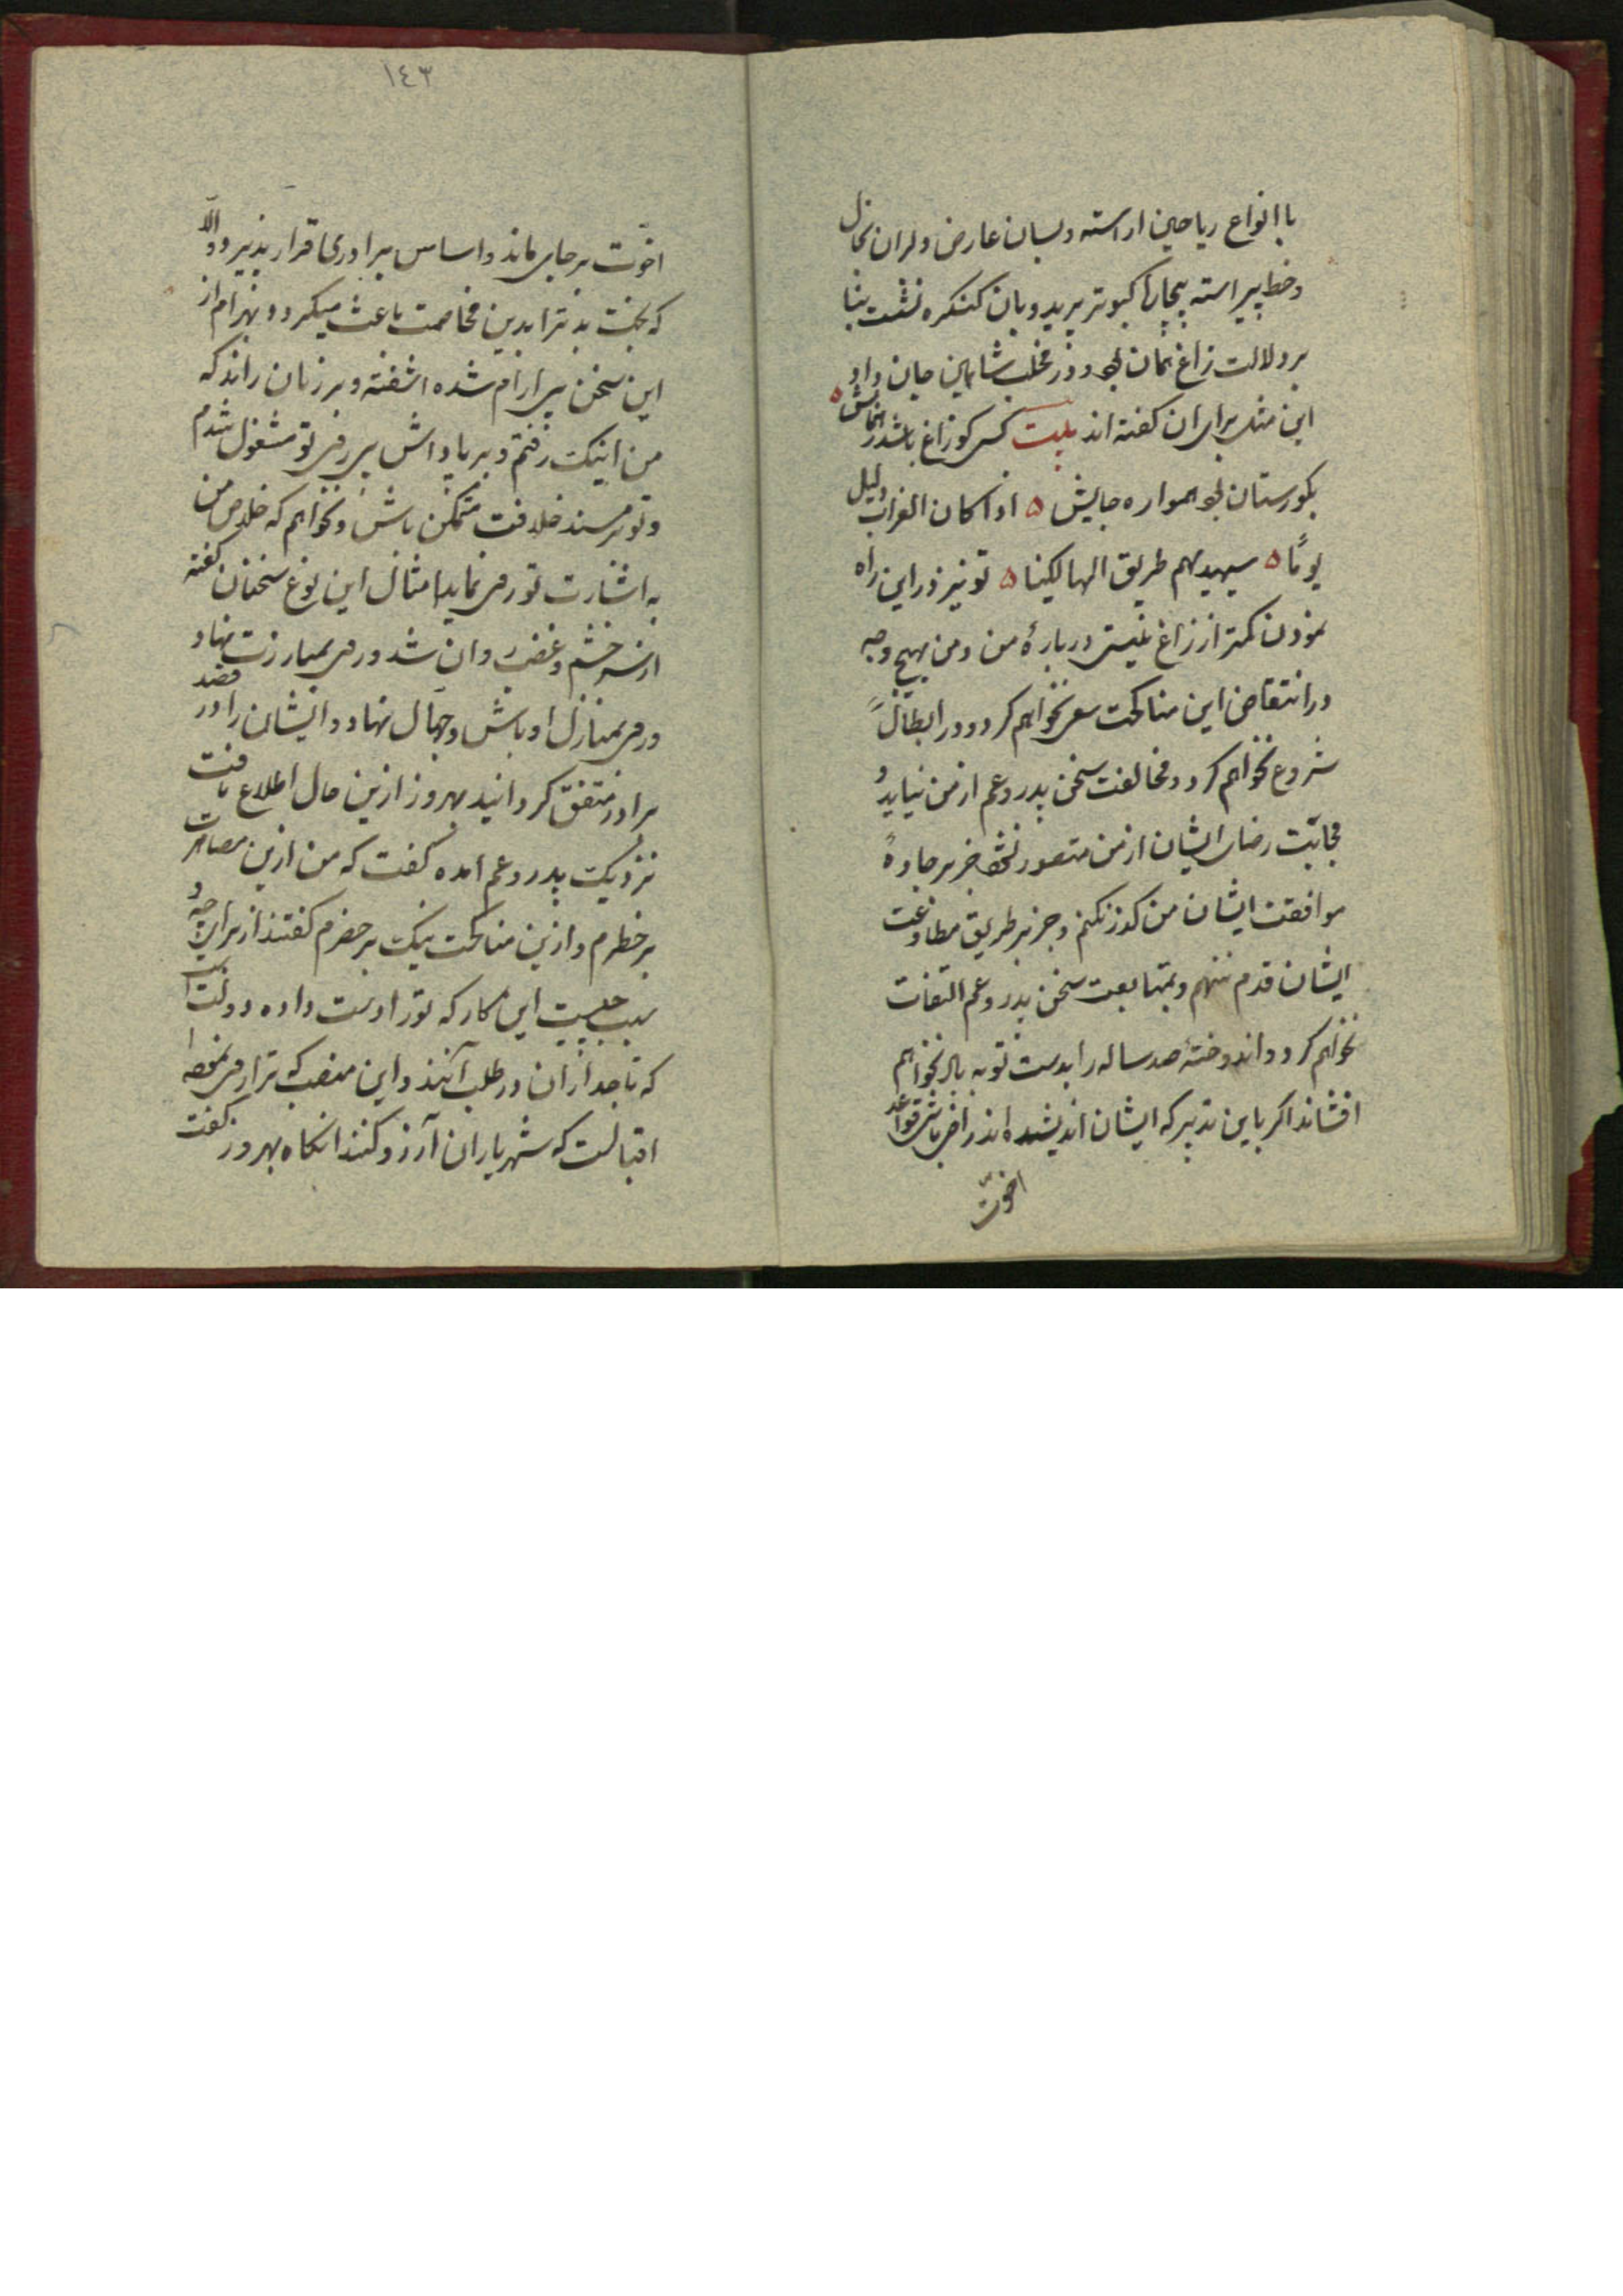 با انواع ریاحین اراسته و بسان عارض دلبران بخال
وخط پیراسته بیچاره کبوتر برید و بان کنکره نشست بنا
بر دلالت زاغ همان بود و در مخلب شاهین جان داد
این مثل برای ان کفته اند بیت کسی کو زاغ باشد رهنمایش
بکورستان بود همواره جایش اذا کان الغراب دلیل
یومًا سیهدیهم طریق الهالکینا تو نیز در این راه
نمودن کمتر از زاغ نیستی درباره من و من بهیچ وجه
در انتقاض این مناکحت سعی نخواهم کرد و در ابطال
شروع نخواهم کرد و مخالفت سخن پدر و عم از من نیاید و
مجانبت رضای ایشان از من متصور نشود جز بر جاده
موافقت ایشان من کذر نکنم و جز بر طریق مطاوعت
ایشان قدم ننهم و بمتابعت سخن پدر و عم التفات
نخواهم کرد و اندوخته صد ساله را بدست توبه باز نخواهم
افشاند اکر باین تدبیر که ایشان اندیشیده اند راضی باشی قواعد
اخوّت
١٤٣
اخوّت بر جای ماند و اساس برادری قرار پذیرد و الّا
که بخت بد ترا بدین مخاصمت باعث میکردد بهرام از
این سخن بی ارام شده اشفته و بر زبان راند که
من اینک رفتم و بر پاداش بی رفی تو مشغول شدم
و تو بر مسند خلافت متمکن باش و نخواهم که خلاص من
به اشارت تو رفی نماید امثال این نوع سخنان کفته
از سر خشم و غضب روان شد و رفی بمبارزت نهاد
و رفی بمنازل اوباش و جهال نهاد و ایشان را در قصد
برادر متفق کردانید بهروز ازین حال اطلاع یافت
نزدیک پدر و عم امده کفت که من ازین مصاهرت
بر خطرم و ازین مناکحت نیک بر حذرم کفتند از برای چه و
سبب چیست این کار که تو را دست داده دولت است
که تاجداران در طلب آنند و این منصب که ترا رفی نموده
اقبالست که شهریاران آرزو کنند انکاه بهروز کفت